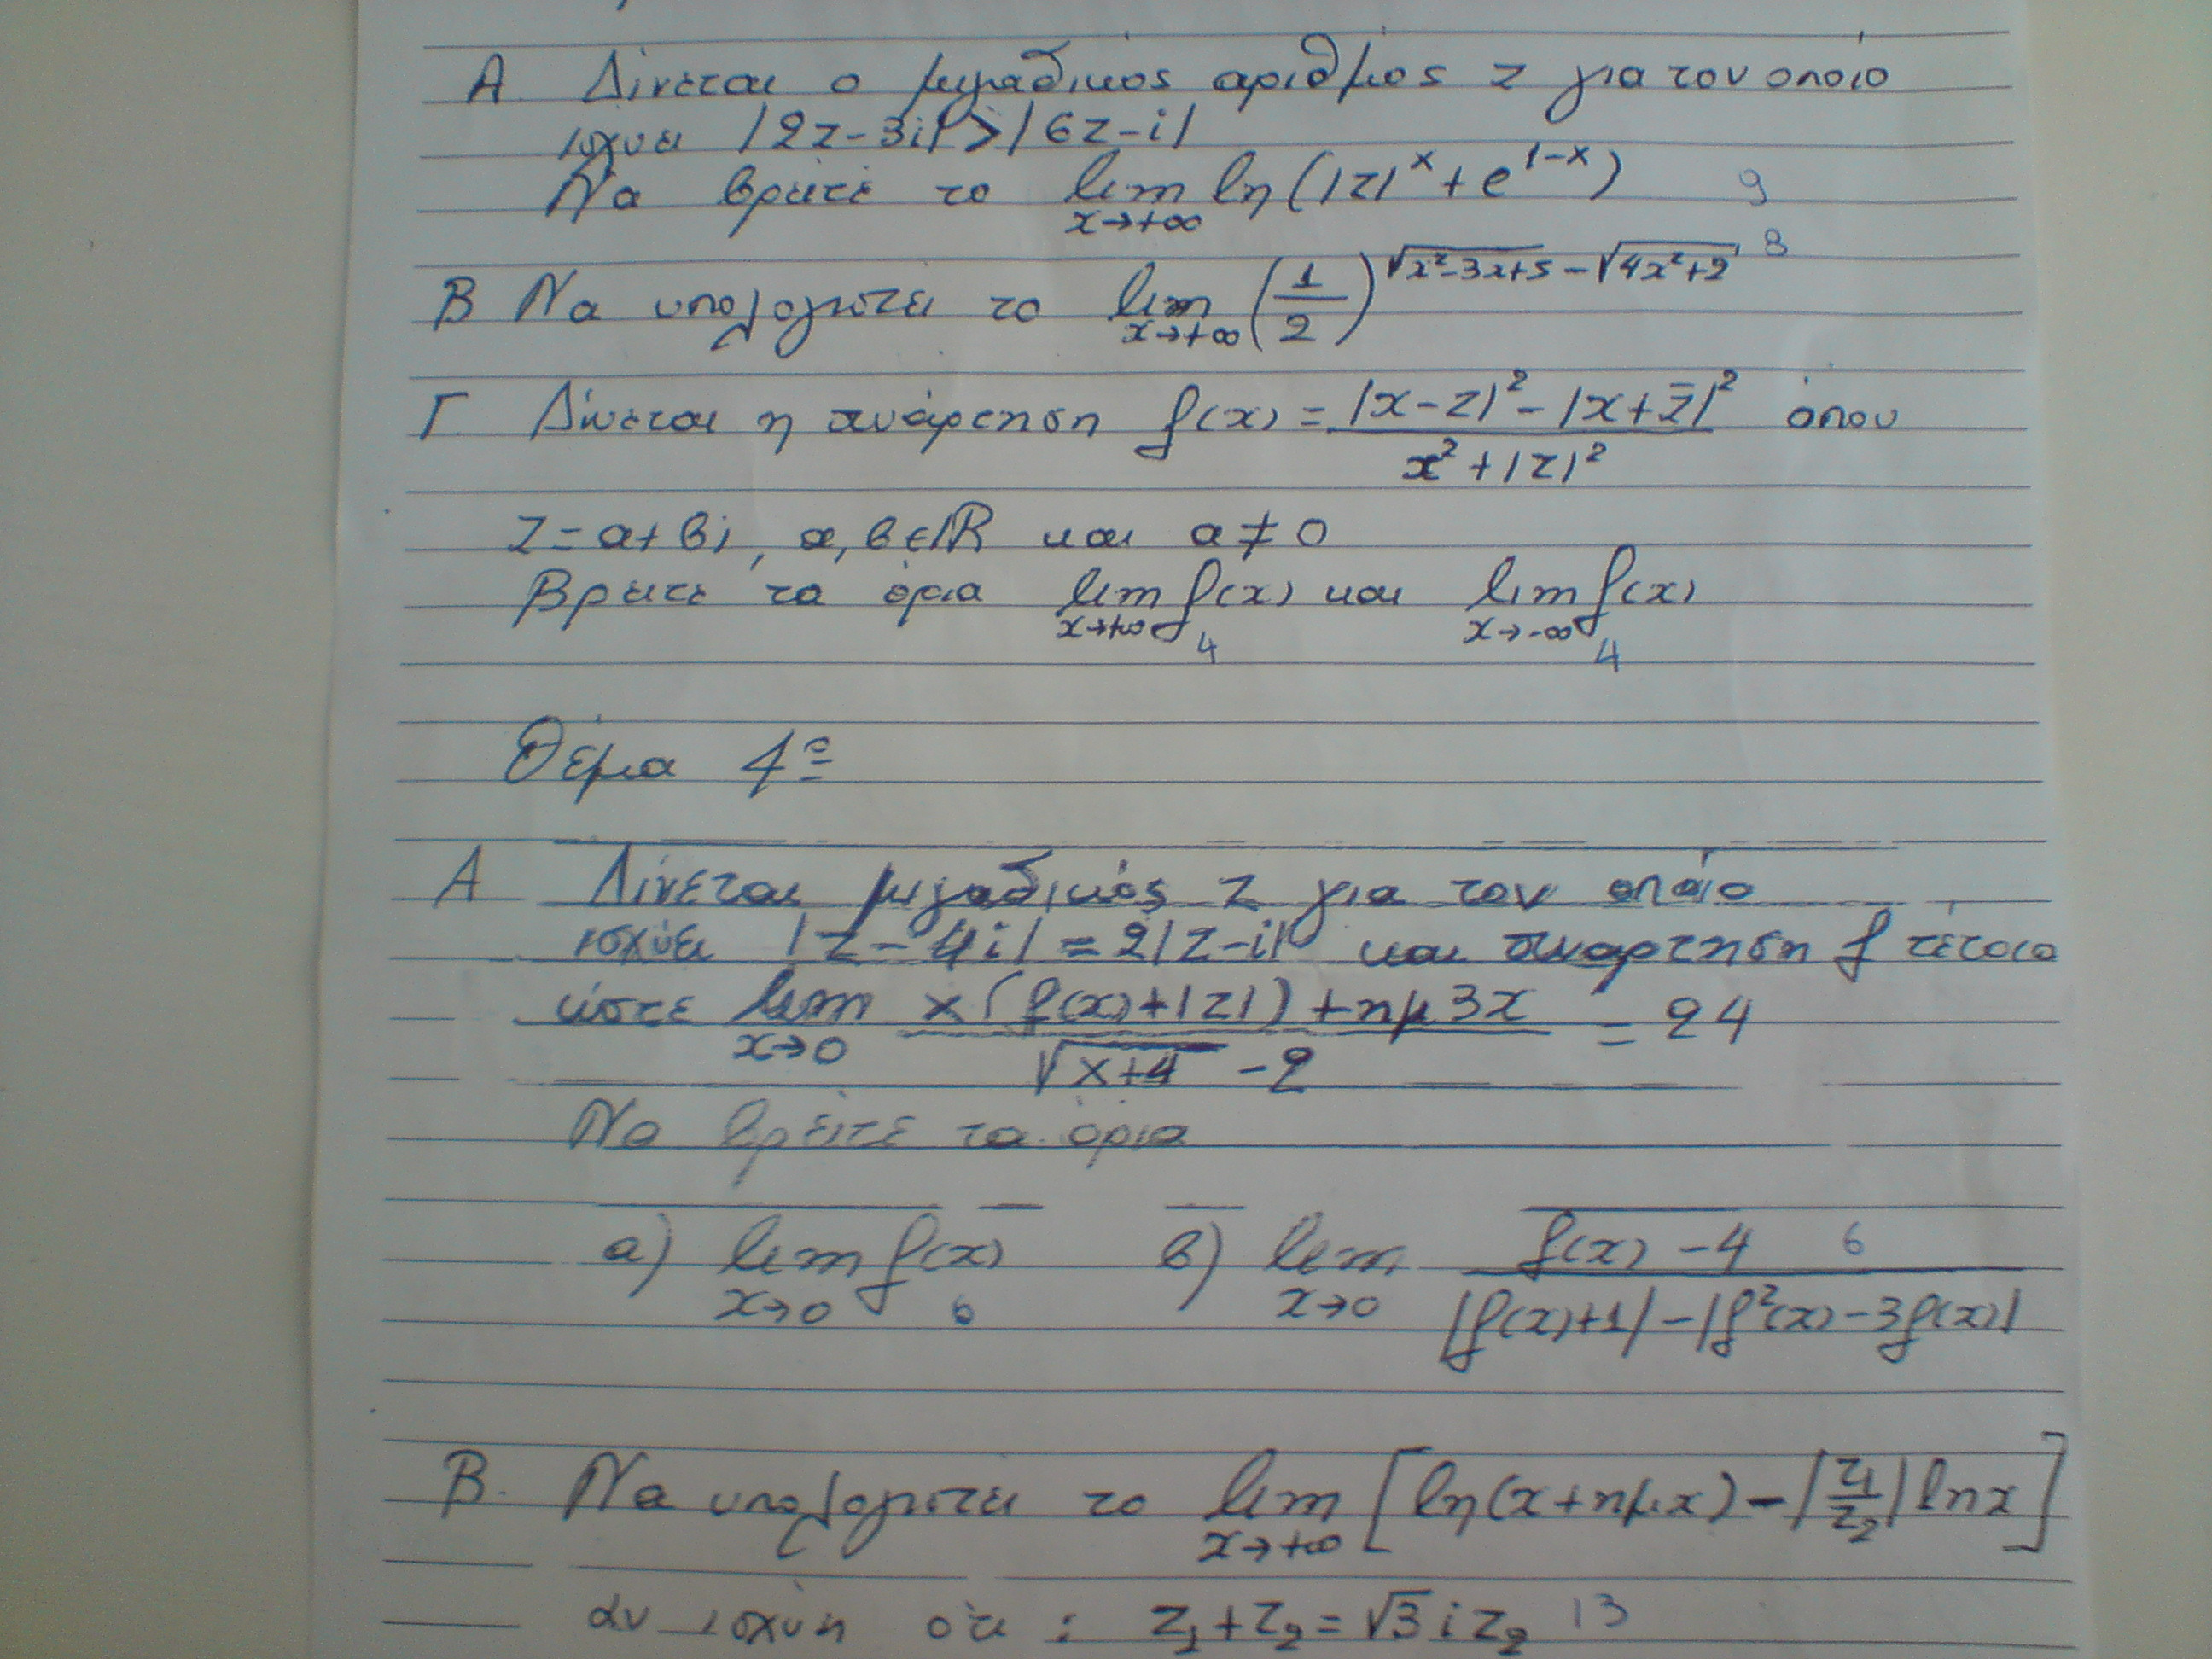 Α. Δίνεται ο μιγαδικός αριθμός z για τον οποίο
ισχύει |2z-3i|>|6z-i|
Να βρείτε το lim x→+∞ ln(|z|^x + e^(1-x)) 9
Β Να υπολογιστεί το lim x→+∞ (1/2)^(√(x²-3x+5) - √(4x²+2)) 8
Γ. Δίνεται η συνάρτηση f(x) = (|x-z|² - |x+z̄|²)/(x²+|z|²) όπου
z=α+βi, α,β∈ℝ και α≠0
Βρείτε τα όρια lim x→+∞ f(x) και lim x→-∞ f(x)
4 4
Θέμα 4º
Α Δίνεται μιγαδικός z για τον οποίο
ισχύει |z-4i| = 2|z-i| και συναρτηση f τέτοια
ώστε lim x→0 (x(f(x)+|z|)+ημ3x)/(√(x+4) -2) = 24
Να βρείτε τα όρια
α) lim x→0 f(x) 6 β) lim x→0 (f(x)-4)/(|f(x)+1|-|f²(x)-3f(x)|) 6
Β. Να υπολογιστεί το lim x→+∞ [ln(x+ημx) - |z₁/z₂| lnx]
αν ισχύη ότι : z₁+z₂=√3 i z₂ 13